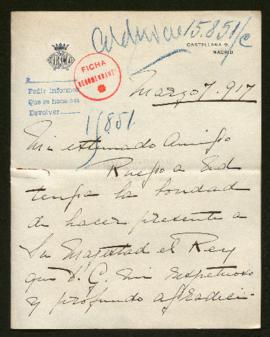 15.851/c
CASTELLANA 9.
MADRID
FICHA
Pedir informe
Que se hace
Devolver
15851
Marzo 7. 917
Mi estimado Amigo
Ruego a Ud
tenga la bondad
de hacer presente a
Su Magestad el Rey
que D. G. mi respetuoso
y profundo agradeci-